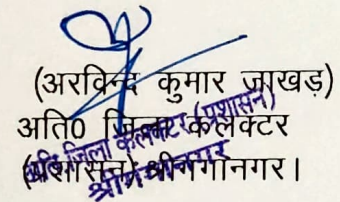 (अरविन्द कुमार जाखड़)
अति0 जिला कलक्टर
(प्रशासन) श्रीगंगानगर।
अति. जिला कलेक्टर (प्रशासन)
श्रीगंगानगर